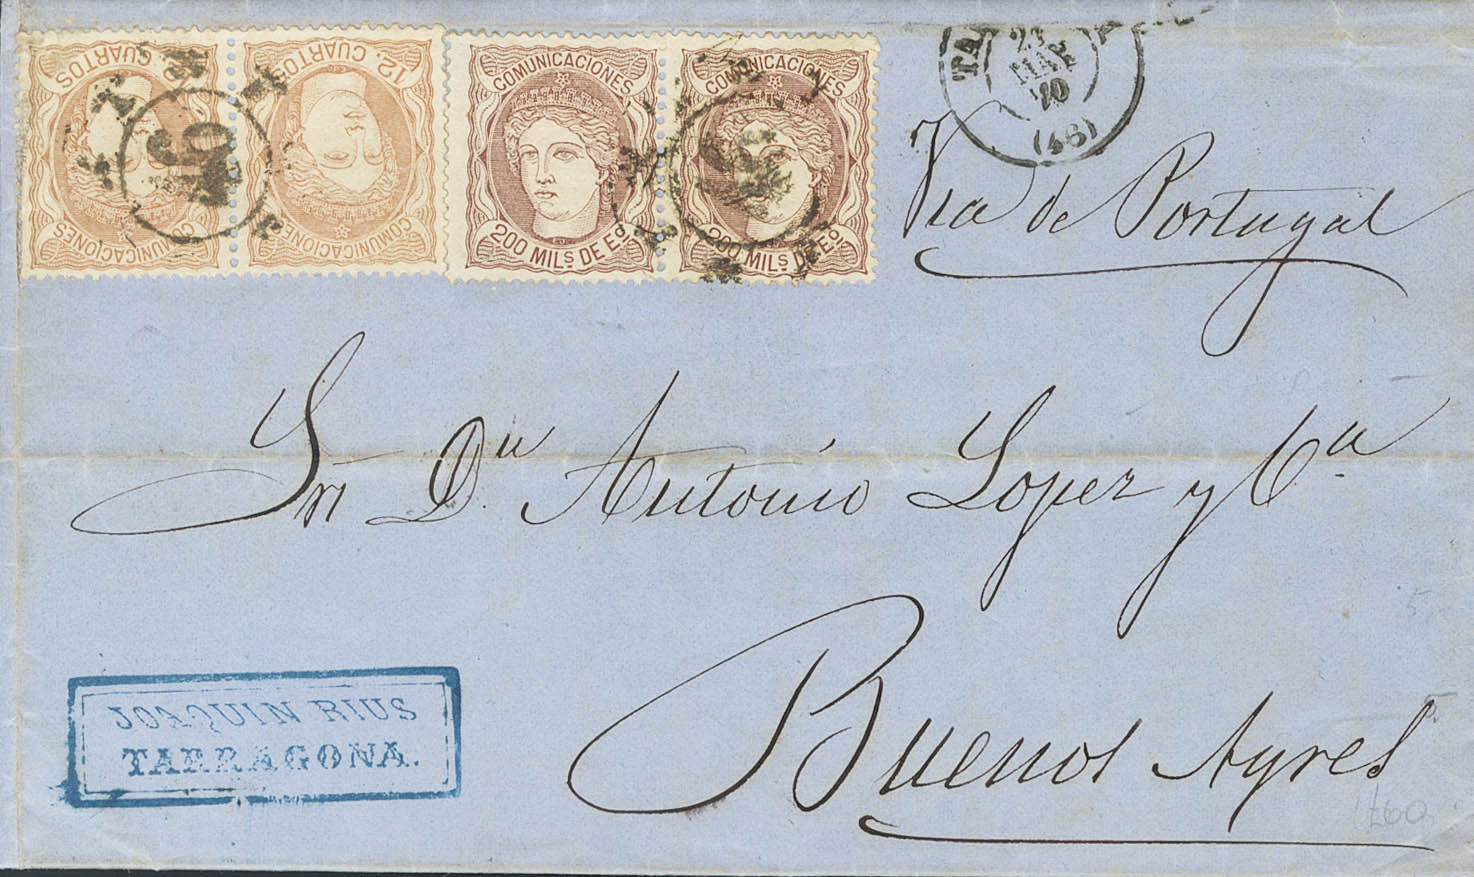 12. CUARTOS
COMUNICACIONES
COMUNICACIONES
200 MILS DE Eº
COMUNICACIONES
200 MILS DE Eº
MAY
70
(48)
Via de Portugal
Sr Dn Antonio Lopez y Cia
Buenos Ayres
JOAQUIN RIUS
TARRAGONA.